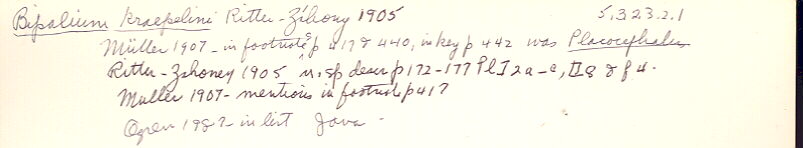 Bipalium kraepelini Ritter-Záhony 1905 5.323.2.1
Müller 1907 - in footnotes p 417 & 440, in key p 442 was Placocephalus
Ritter-Zahoney 1905 n.sp descr p 172-177 Pl I 2a-c, II 8 & f 4.
Muller 1907 - mentions in footnote p 417
Ogren 1987 - in list Java -